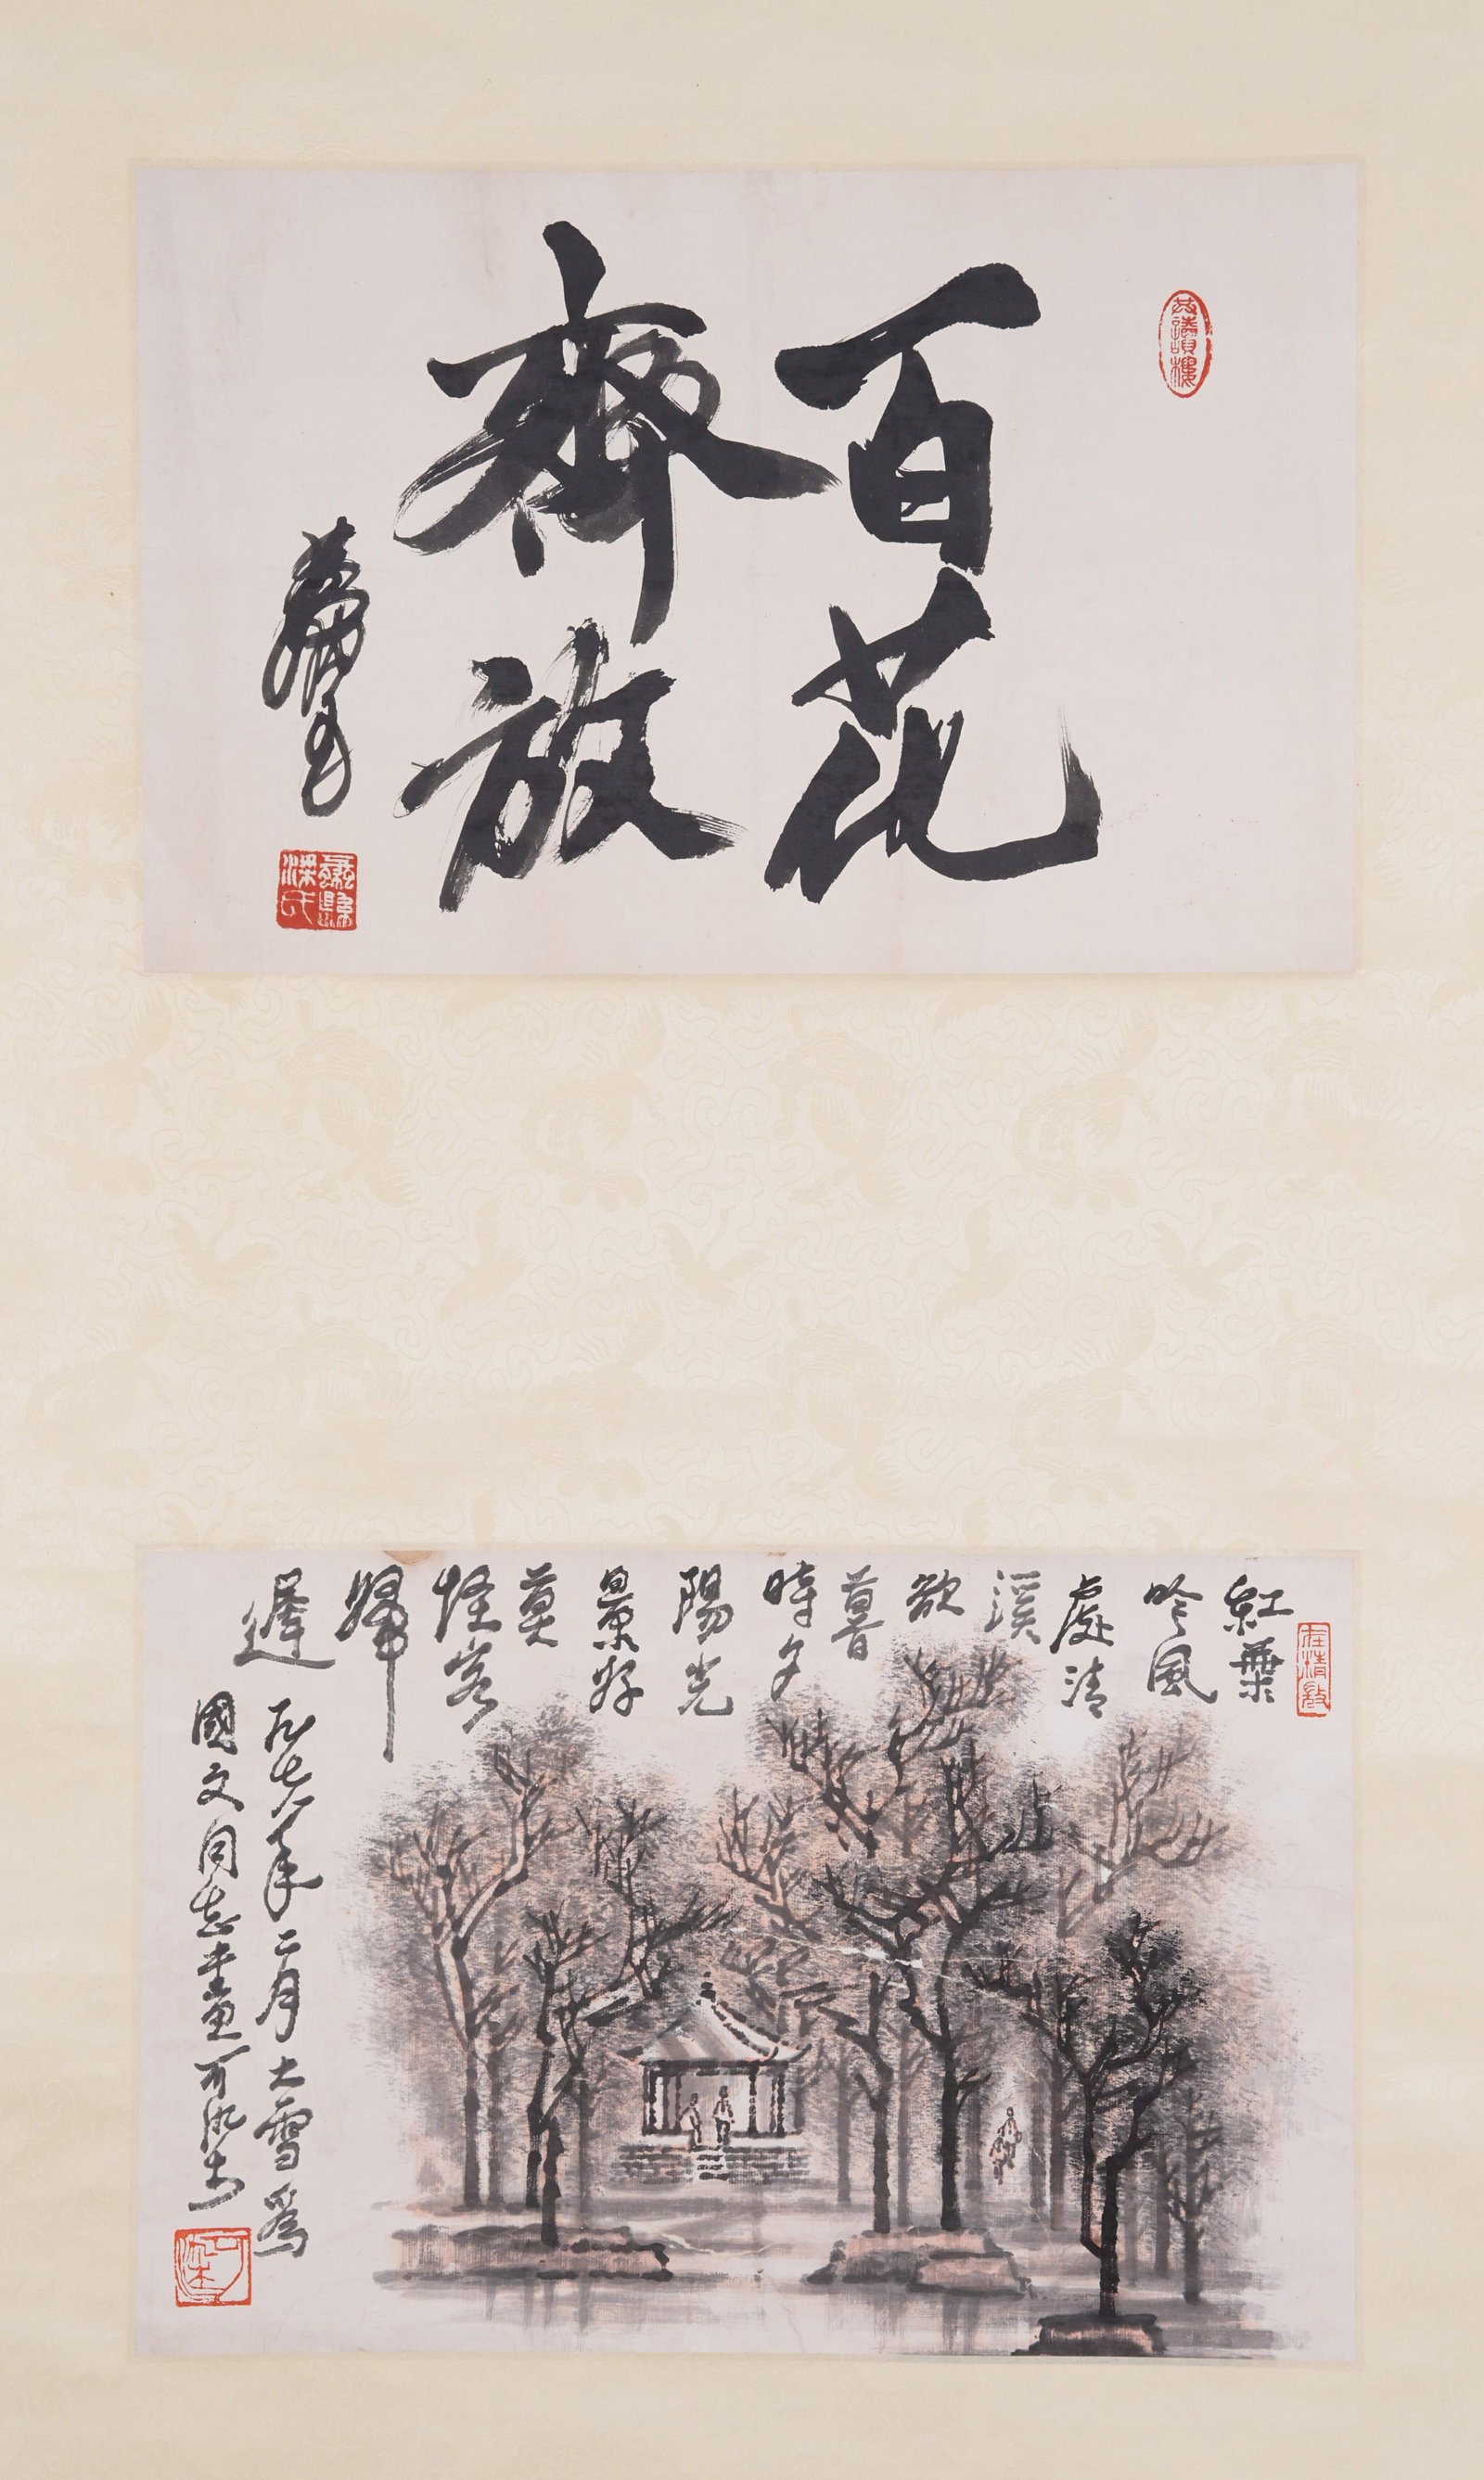 百花
齊放
紅葉
吟風
處清
溪
欲
暮
時夕
陽光
景好
莫
怪客
歸
遲
一九七八年二月大雪爲
國文同志畫可